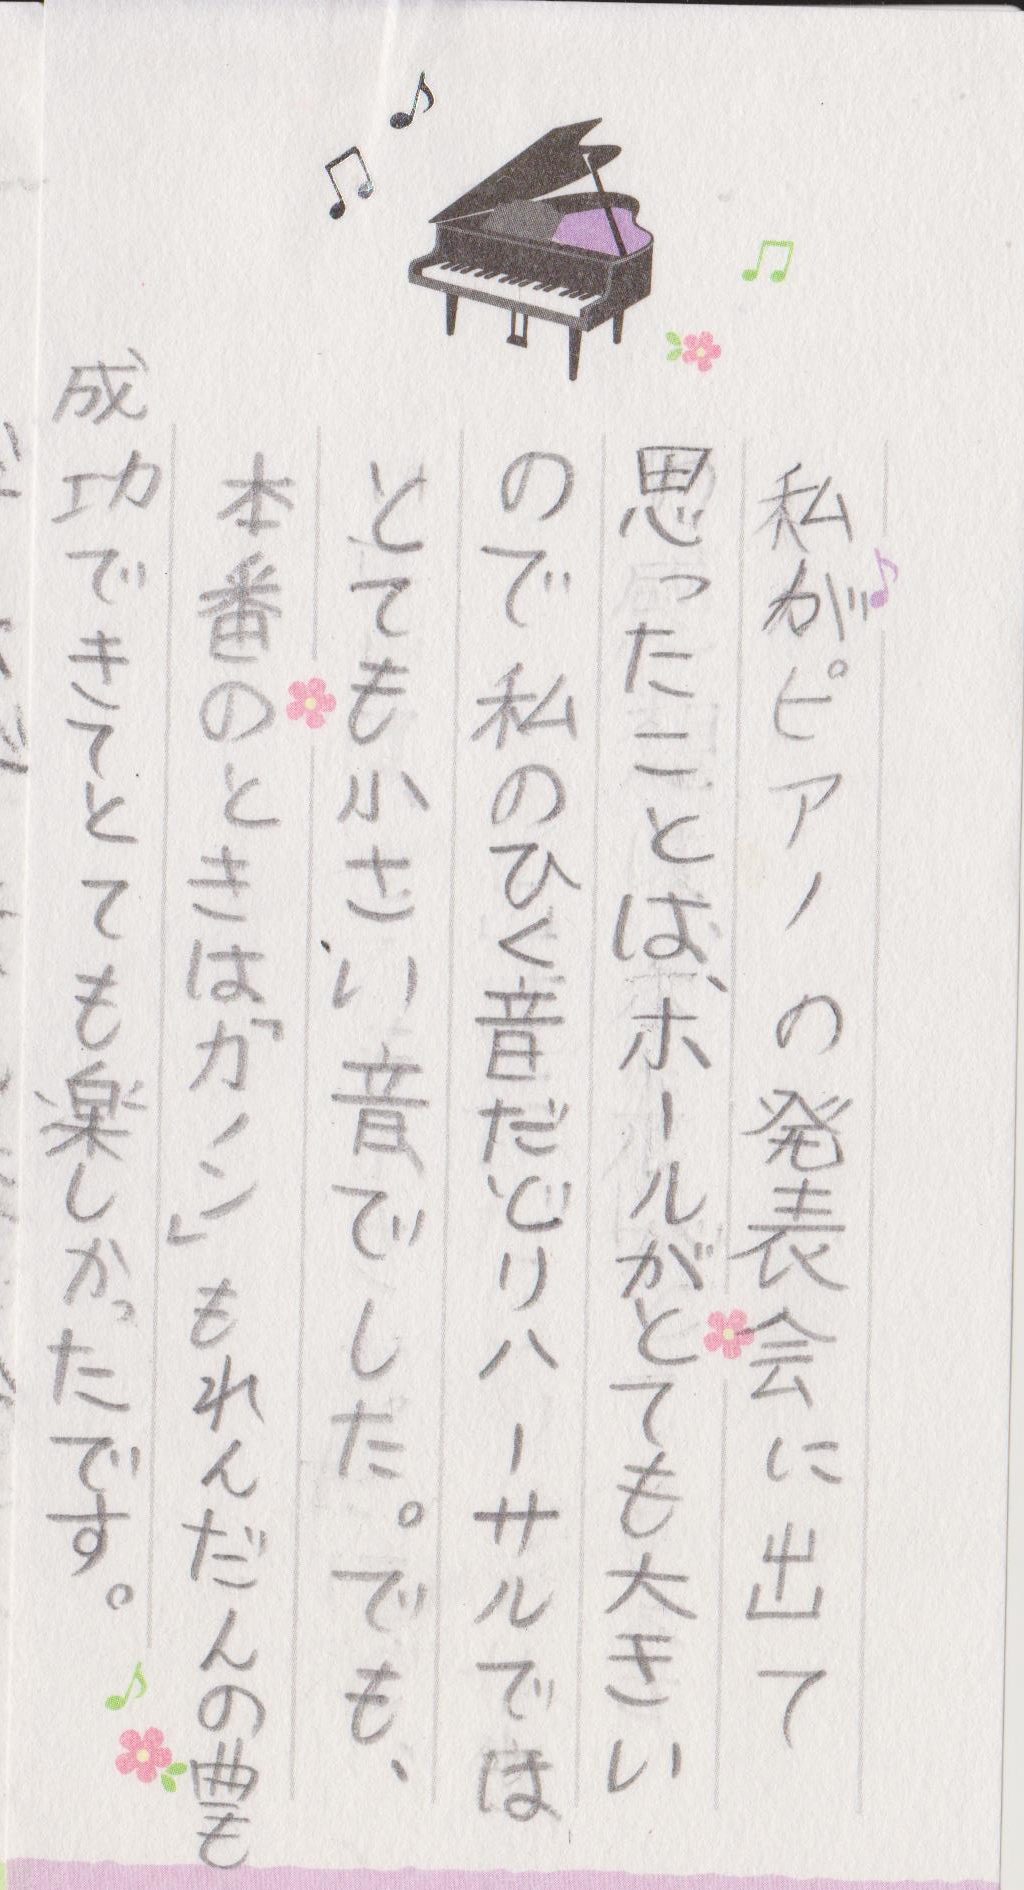 私がピアノの発表会に出て
思ったことは、ホールがとても大きい
ので私のひく音だとリハーサルでは
とても小さい音でした。でも、
本番のときは「カノン」もれんだんの曲も
成功できてとても楽しかったです。